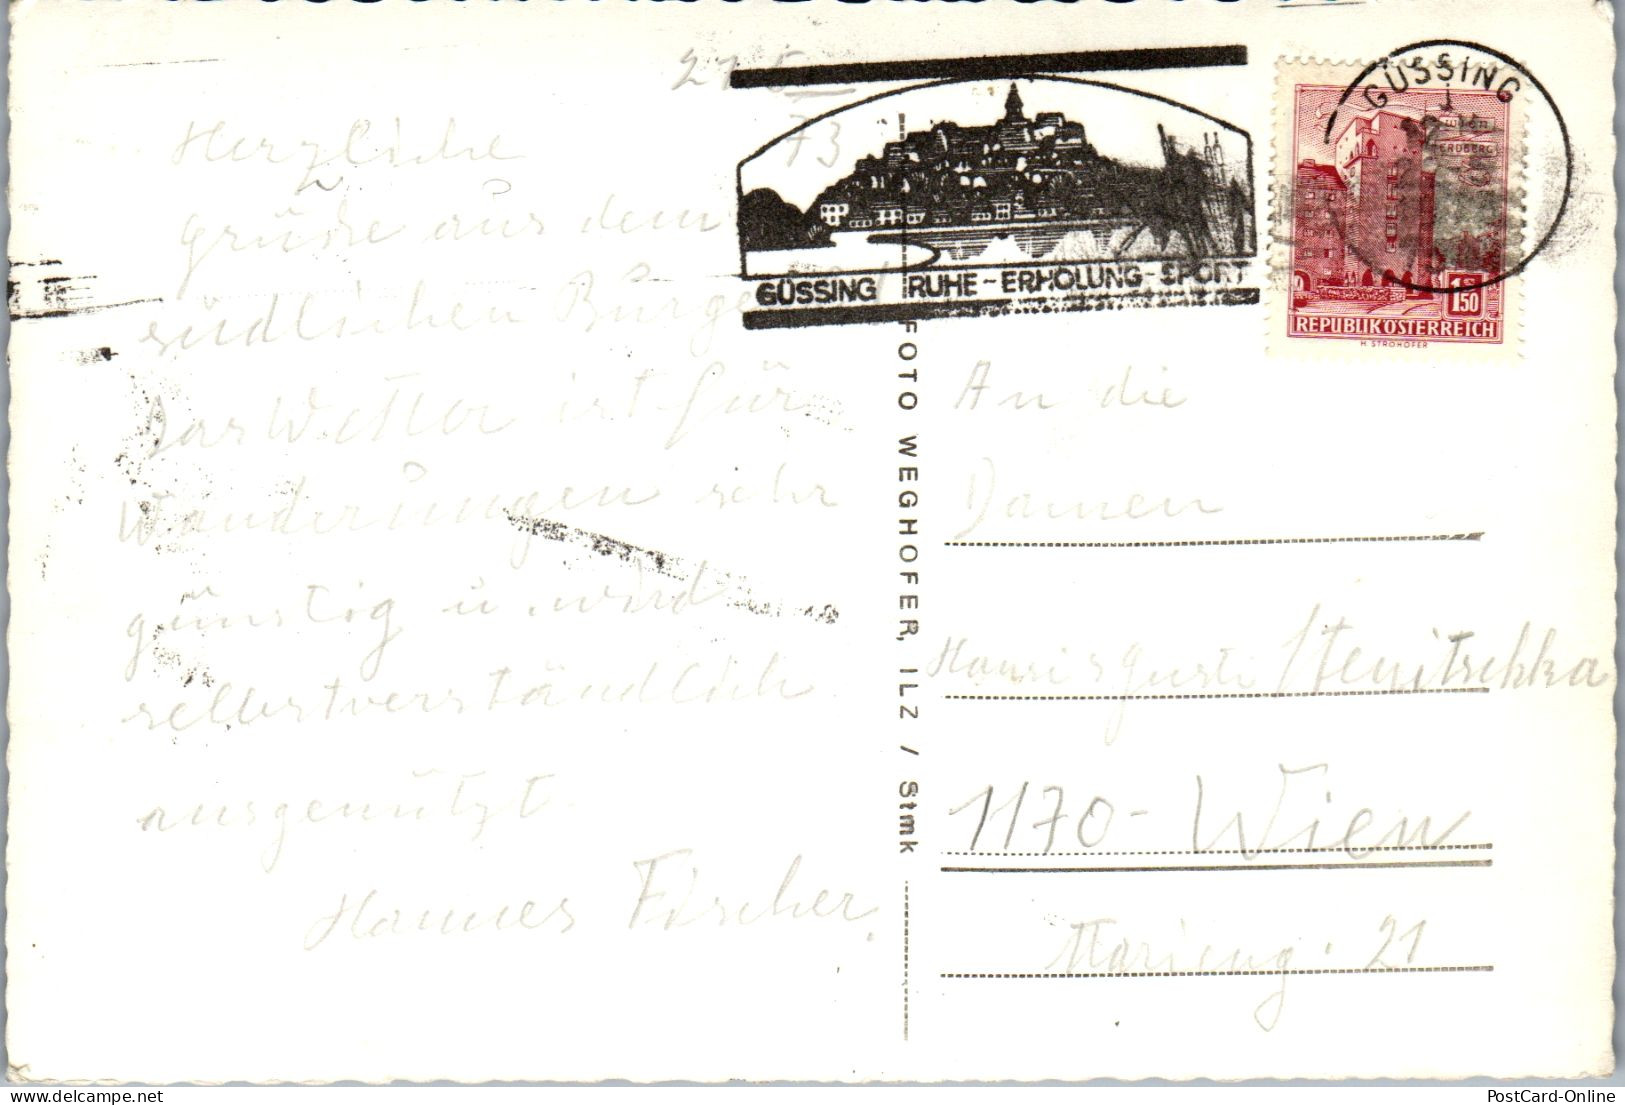 21. 5.
73
Herzliche
grüsse aus dem
südlichen
Das Wetter ist für
Wanderungen sehr
günstig u. wird
selbstverständlich
ausgenützt.
Hannes Fischer.
GÜSSING RUHE-ERHOLUNG-SPORT
GÜSSING
ERDBERG
1.50
REPUBLIK ÖSTERREICH
H. STROHOFER
FOTO WEGHOFER, ILZ / Stmk
An die
Damen
Gusti Stenitschka
1170 - Wien
21
PostCard-Online